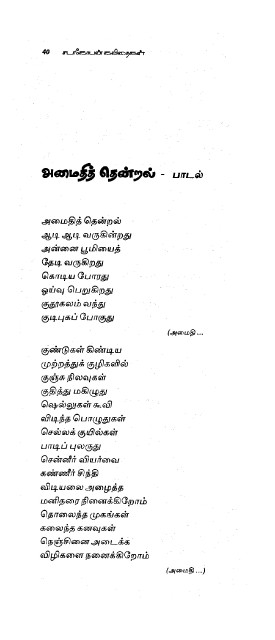 40 உடஃகேயன் கவிதைகள்
அமைதித் தென்றல் - பாடல்
அமைதித் தென்றல்
ஆடி ஆடி வருகின்றது
அன்னை பூமியைத்
தேடி வருகிறது
கொடிய போரது
ஓய்வு பெறுகிறது
குதூகலம் வந்து
குடிபுகப் போகுது
(அமைதி ...
குண்டுகள் கிண்டிய
முற்றத்துக் குழிகளில்
குஞ்சு நிலவுகள்
குதித்து மகிழுது
ஷெல்லுகள் கூவி
விடிந்த பொழுதுகள்
செல்லக் குயில்கள்
பாடிப் புலருது
சென்னீர் வியர்வை
கண்ணீர் சிந்தி
விடியலை அழைத்த
மனிதரை நினைக்கிறோம்
தொலைந்த முகங்கள்
கலைந்த கனவுகள்
நெஞ்சினை அடைக்க
விழிகளை நனைக்கிறோம்
(அமைதி ...)